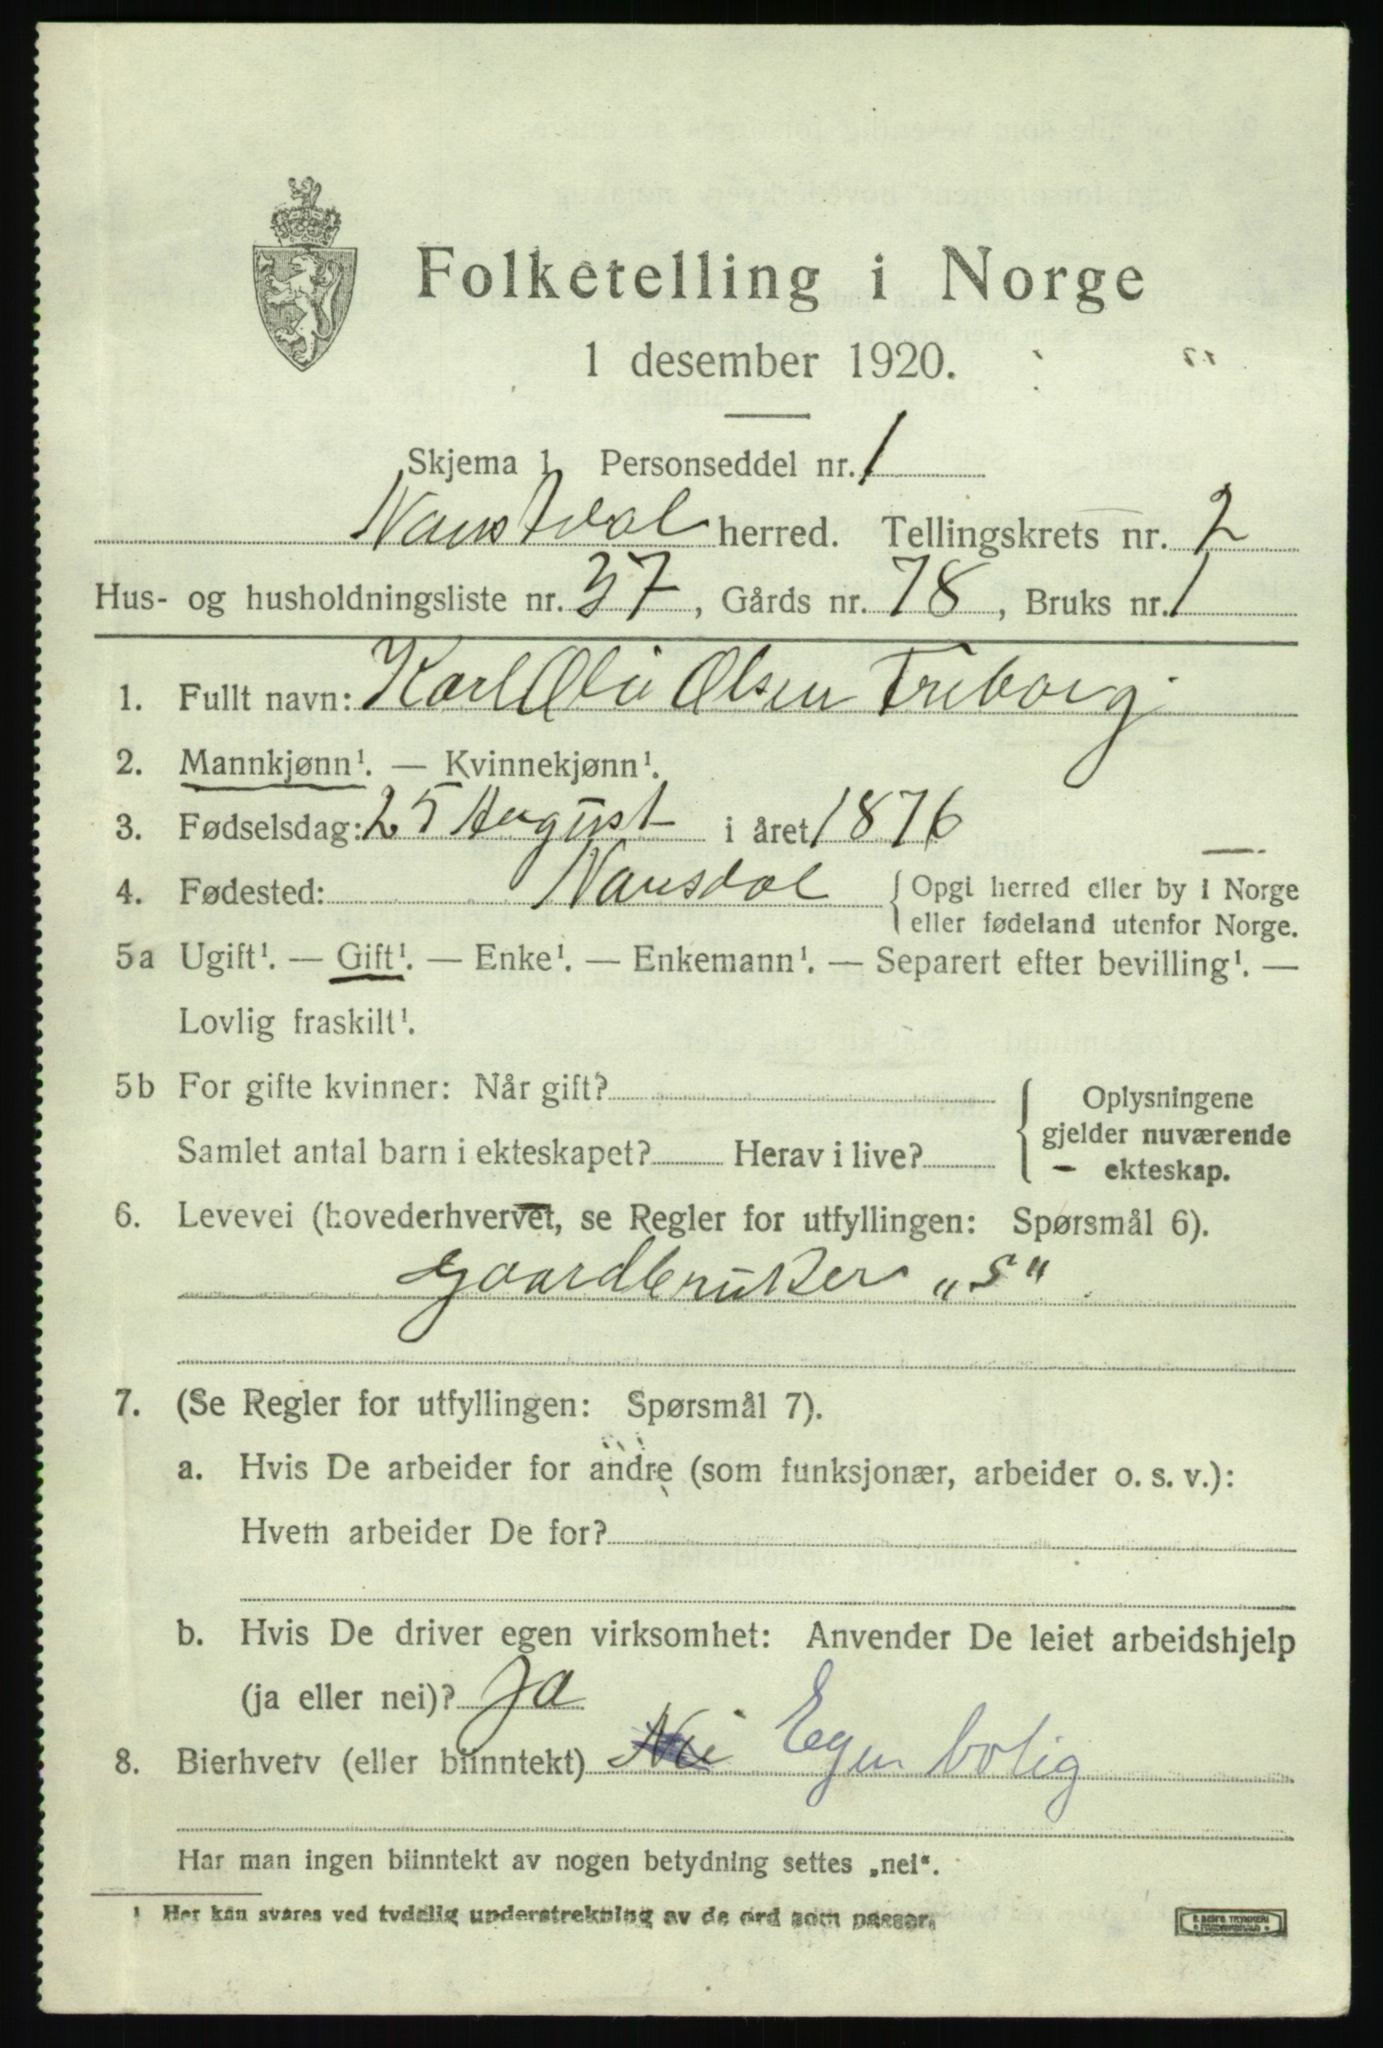 Folketelling i Norge
1 desember 1920.
Skjema 1 Personseddel nr. 1
Naustdal herred. Tellingskrets nr. 2
Hus- og husholdningsliste nr. 37, Gårds nr. 78, Bruks nr. 1
1. Fullt navn: Karl Olai Olsen Friborg
2. Mannkjønn¹. — Kvinnekjønn¹.
3. Fødselsdag: 25 August i året 1876
4. Fødested: Nausdal { Opgi herred eller by i Norge
eller fødeland utenfor Norge.
5a Ugift¹. — Gift¹. — Enke¹. — Enkemann¹. — Separert efter bevilling¹. —
Lovlig fraskilt¹.
5b For gifte kvinner: Når gift? { Oplysningene
gjelder nuværende
Samlet antal barn i ekteskapet? Herav i live?
— ekteskap.
6. Levevei (hovederhvervet, se Regler for utfyllingen: Spørsmål 6).
Gaardbruker „S"
7. (Se Regler for utfyllingen: Spørsmål 7).
a. Hvis De arbeider for andre (som funksjonær, arbeider o. s. v.):
Hvem arbeider De for?
b. Hvis De driver egen virksomhet: Anvender De leiet arbeidshjelp
(ja eller nei)? Ja
8. Bierhverv (eller biinntekt) Egen bolig
Har man ingen biinntekt av nogen betydning settes „nei".
¹ Her kan svares ved tydelig understrekning av de ord som passer.